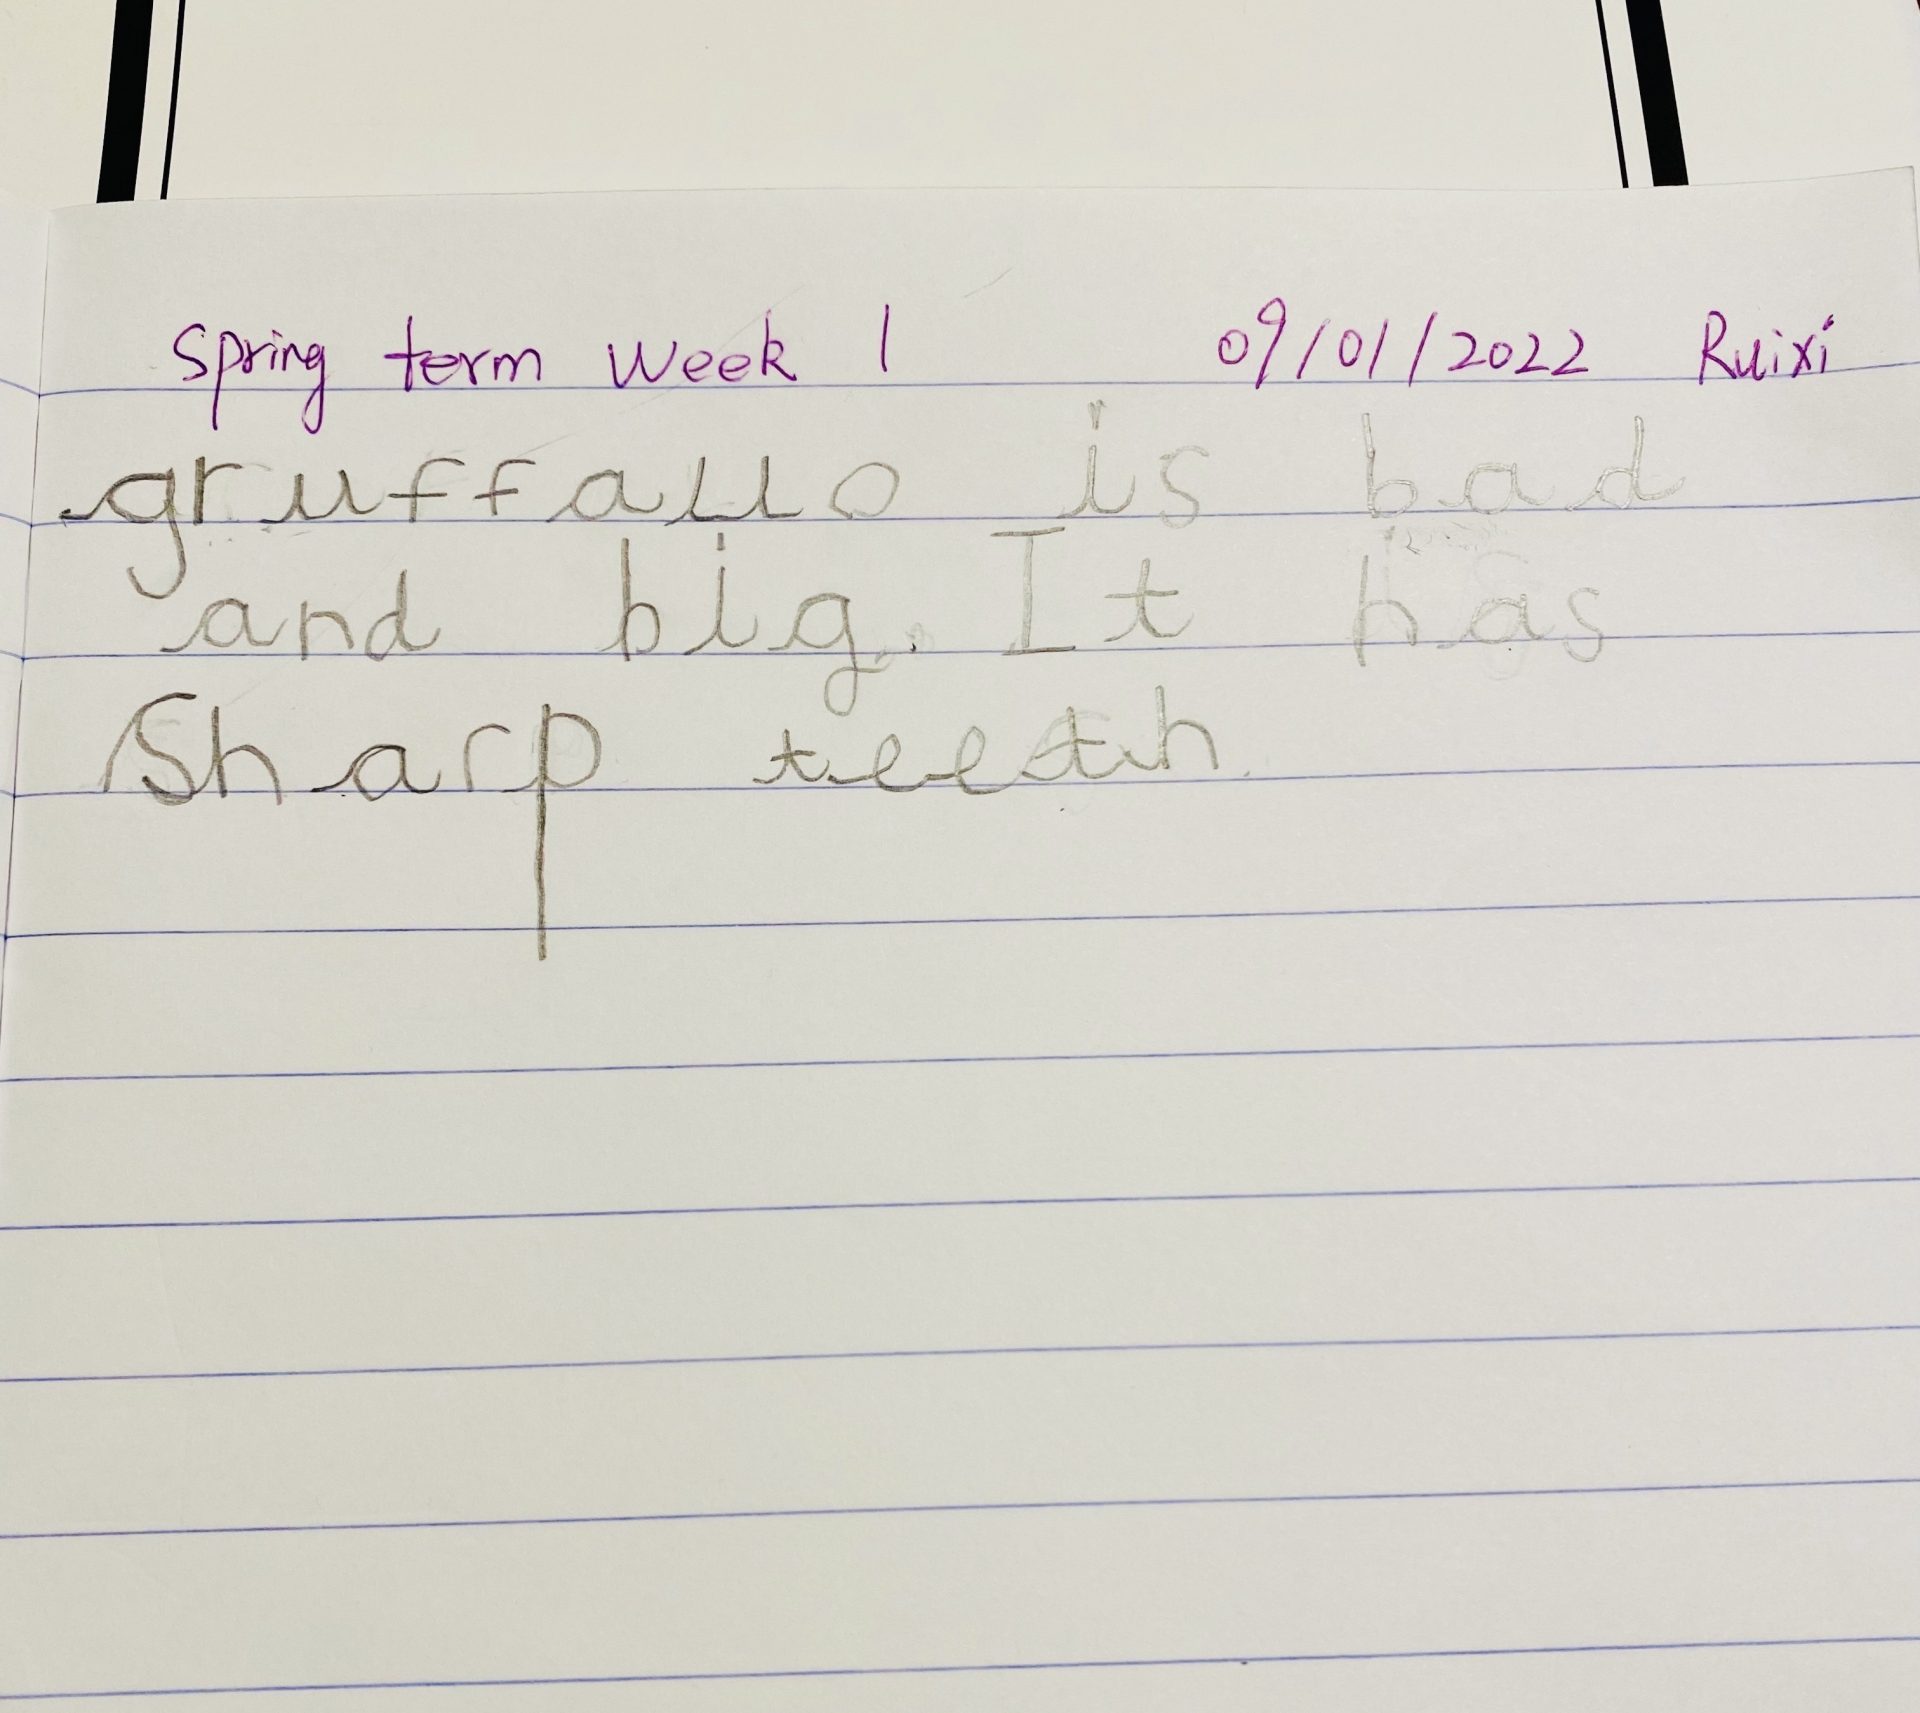 Spring term week 1 09/01/2022 Ruixi
gruffallo is bad
and big. It has
Sharp teeth.